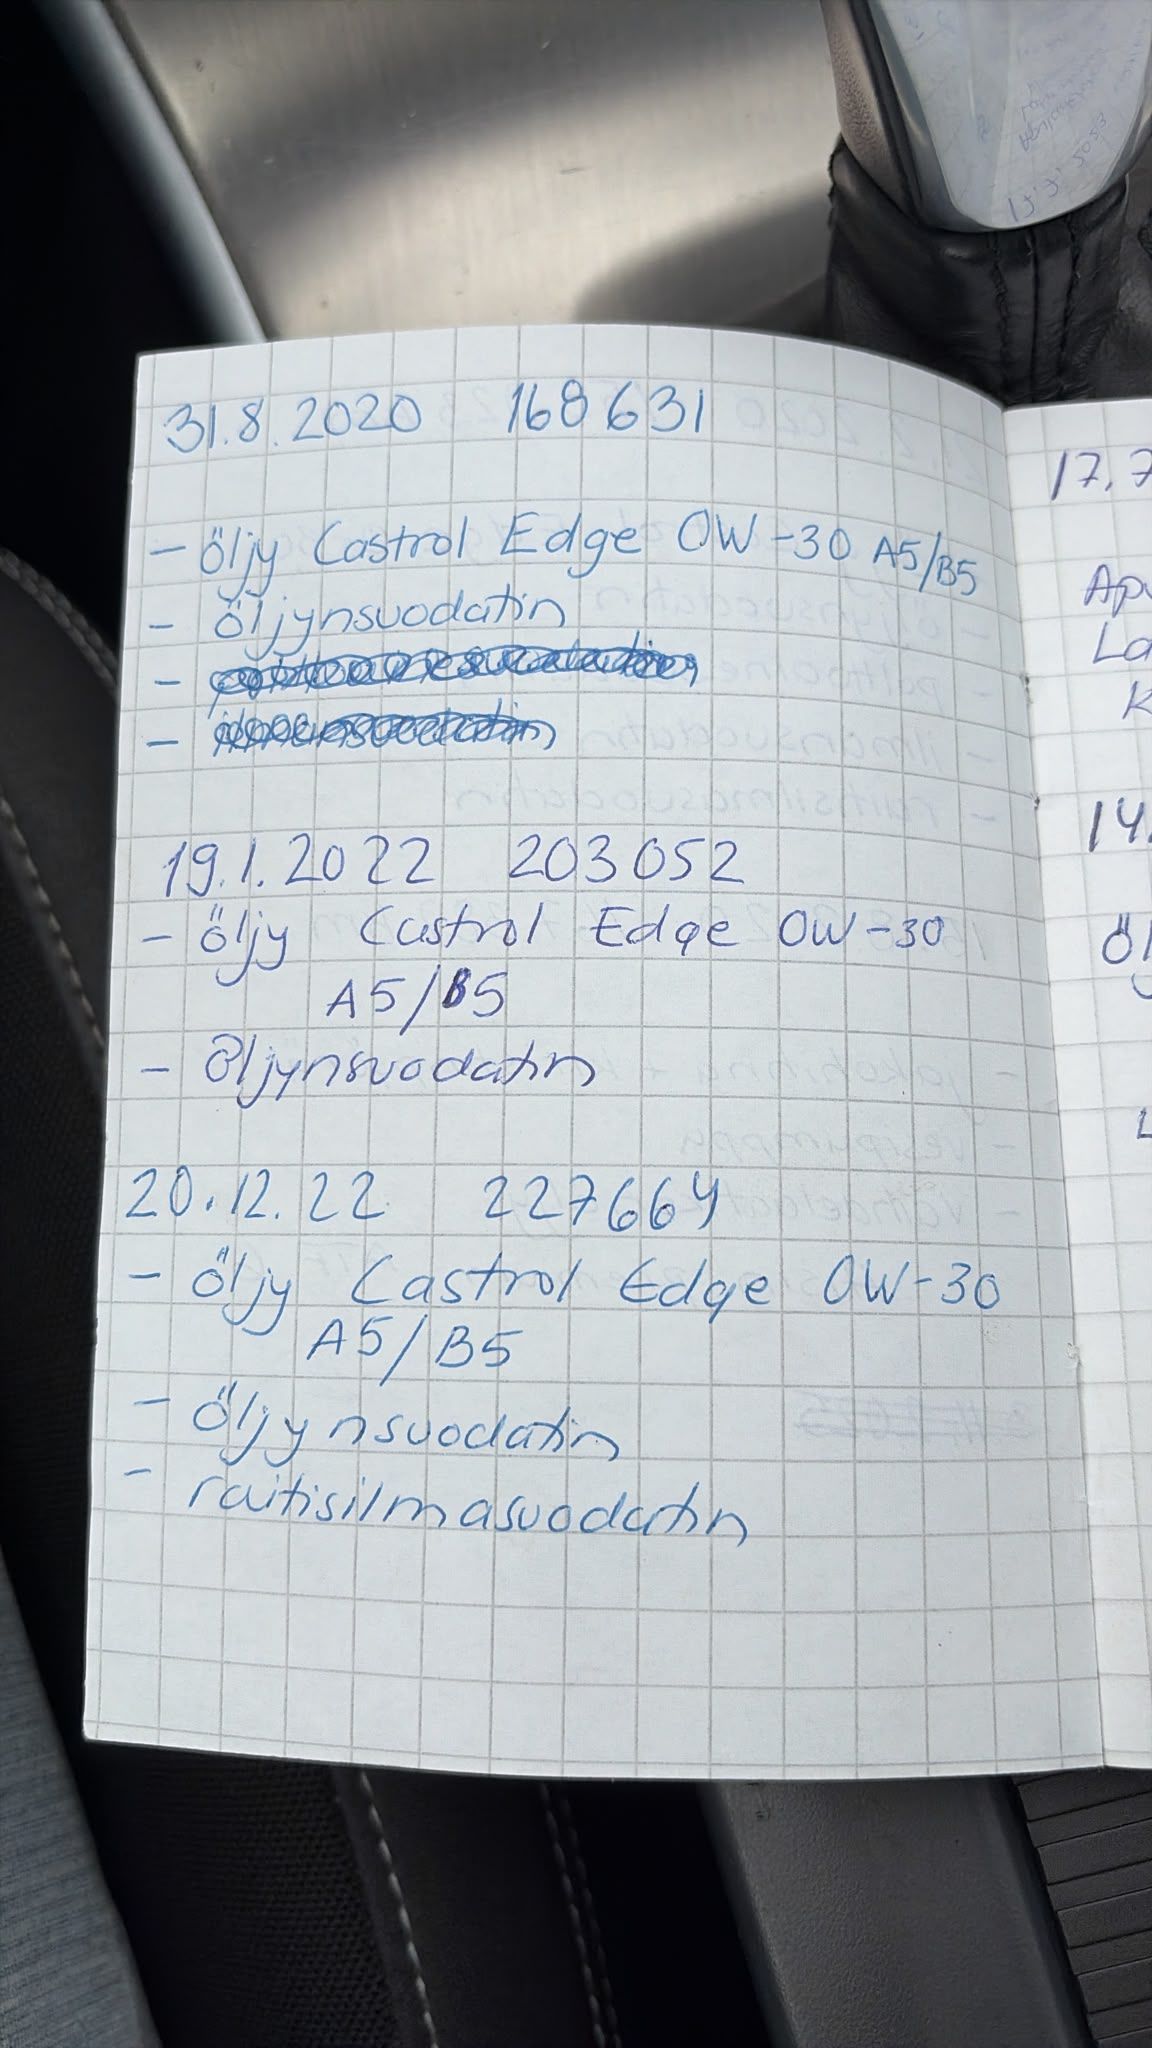 31.8.2020 168631
- öljy Castrol Edge 0W-30 A5/B5
- öljynsuodatin
-
-
19.1.2022 203052
- öljy Castrol Edge 0W-30
A5/B5
- Öljynsuodatin
20.12.22 227664
- öljy Castrol Edge 0W-30
A5/B5
- öljynsuodatin
- raitisilmasuodatin
17.7
14.
17.7.2023